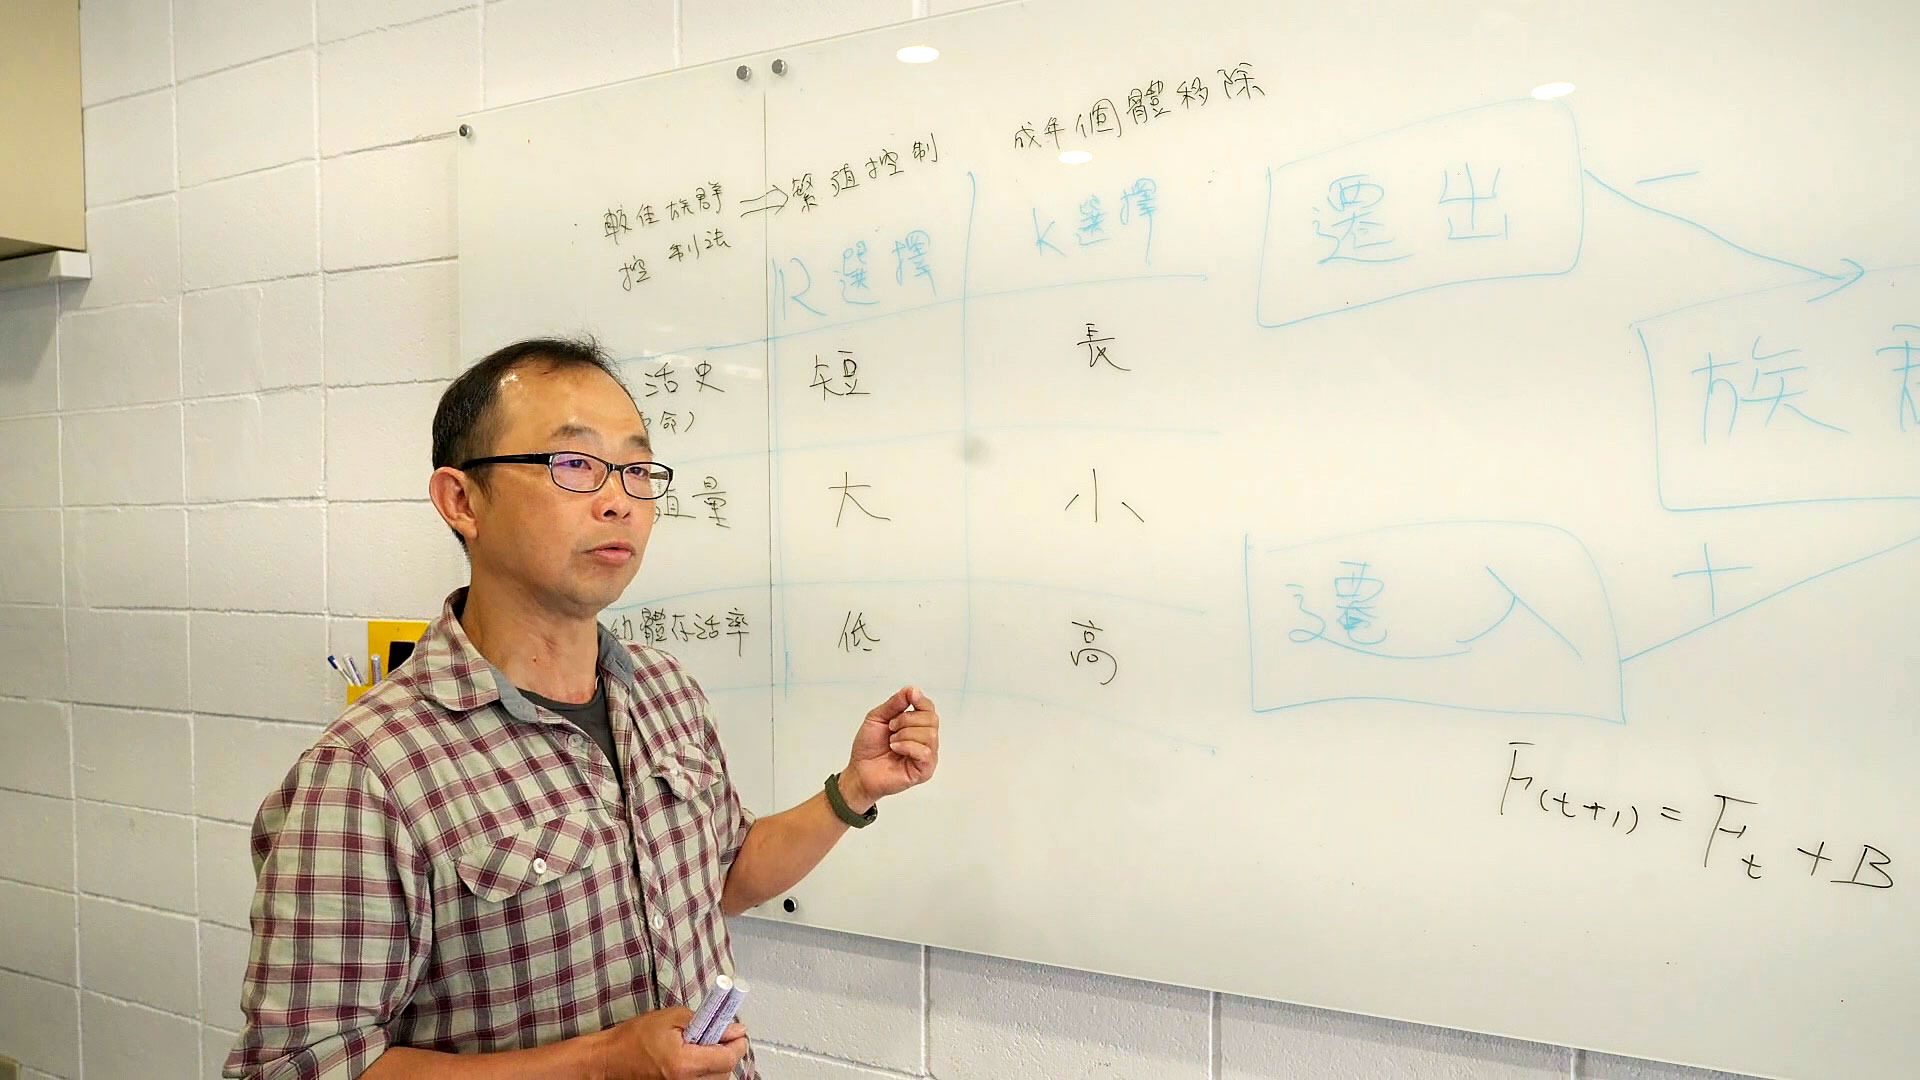 成年個體移除
較佳族群 ⇒ 繁殖控制
控制法
R選擇 K選擇
活史 短 長
命)
殖量 大 小
幼體存活率 低 高
遷出
−
族
遷入
+
F(t+1) = Ft + B